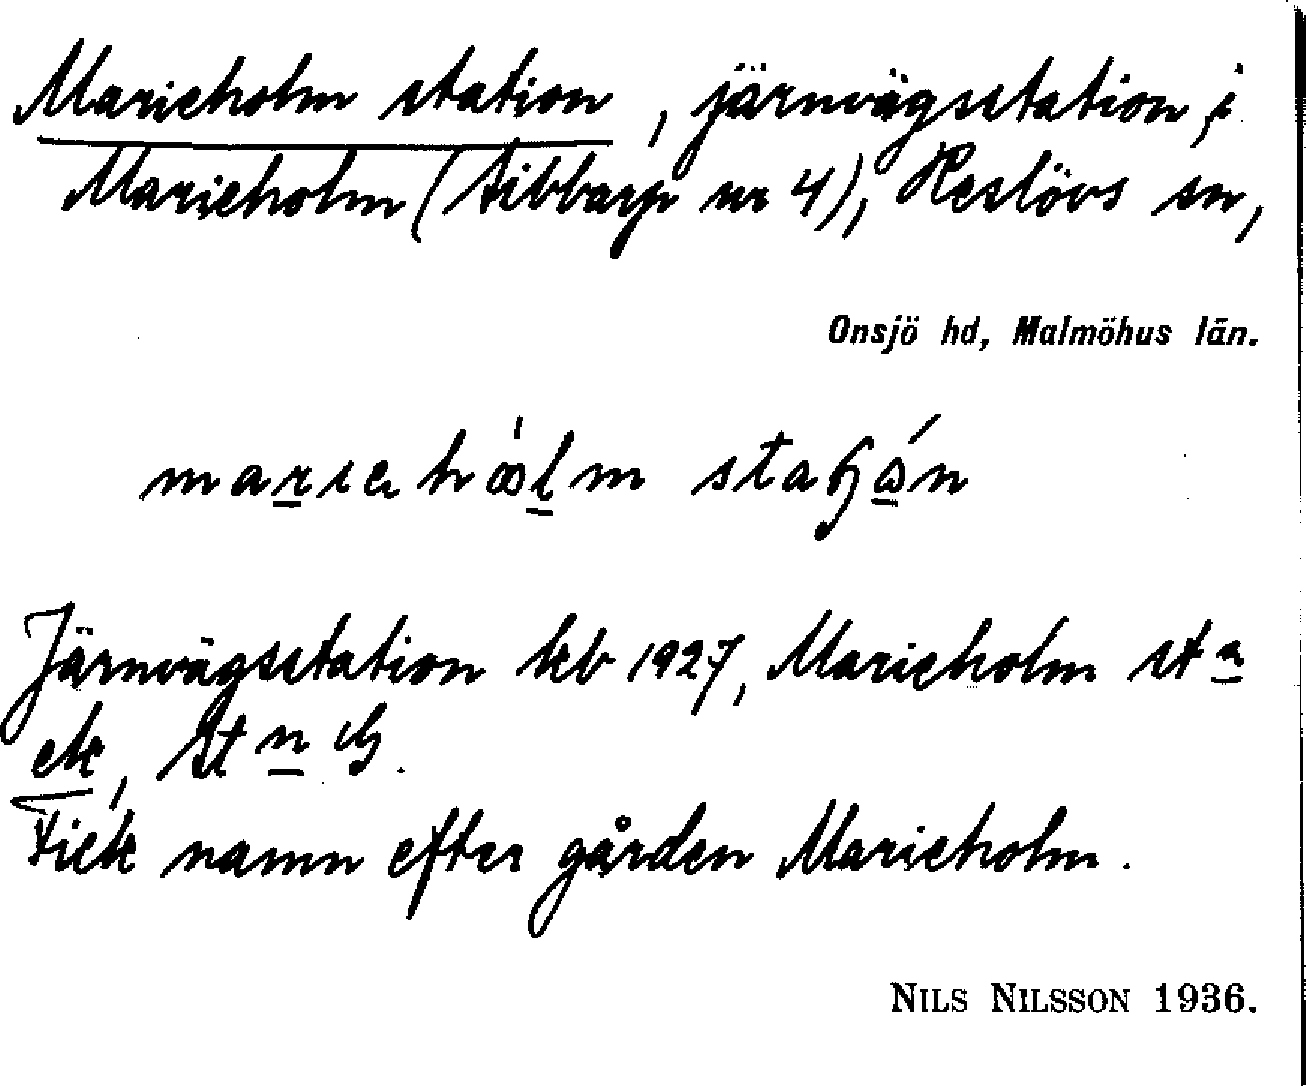 Marieholm station, järnvägsstation i
Marieholm (Tibbarp nr 4), Reslövs sn,
Onsjö hd, Malmöhus län.
Järnvägsstation kb 1927, Marieholm st n
ek, St n
Fick namn efter gården Marieholm.
NILS NILSSON 1936.